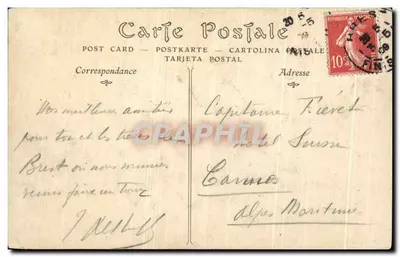 Carte Postale
POST CARD — POSTKARTE — CARTOLINA POSTALE
TARJETA POSTAL
Correspondance
Adresse
Nos meilleures amitiés
pour toi et les
Brest où nous sommes
venus faire un tour
Capitaine Fiévet
Hotel Suisse
Cannes
Alpes Maritimes
10
CARTE PHIL